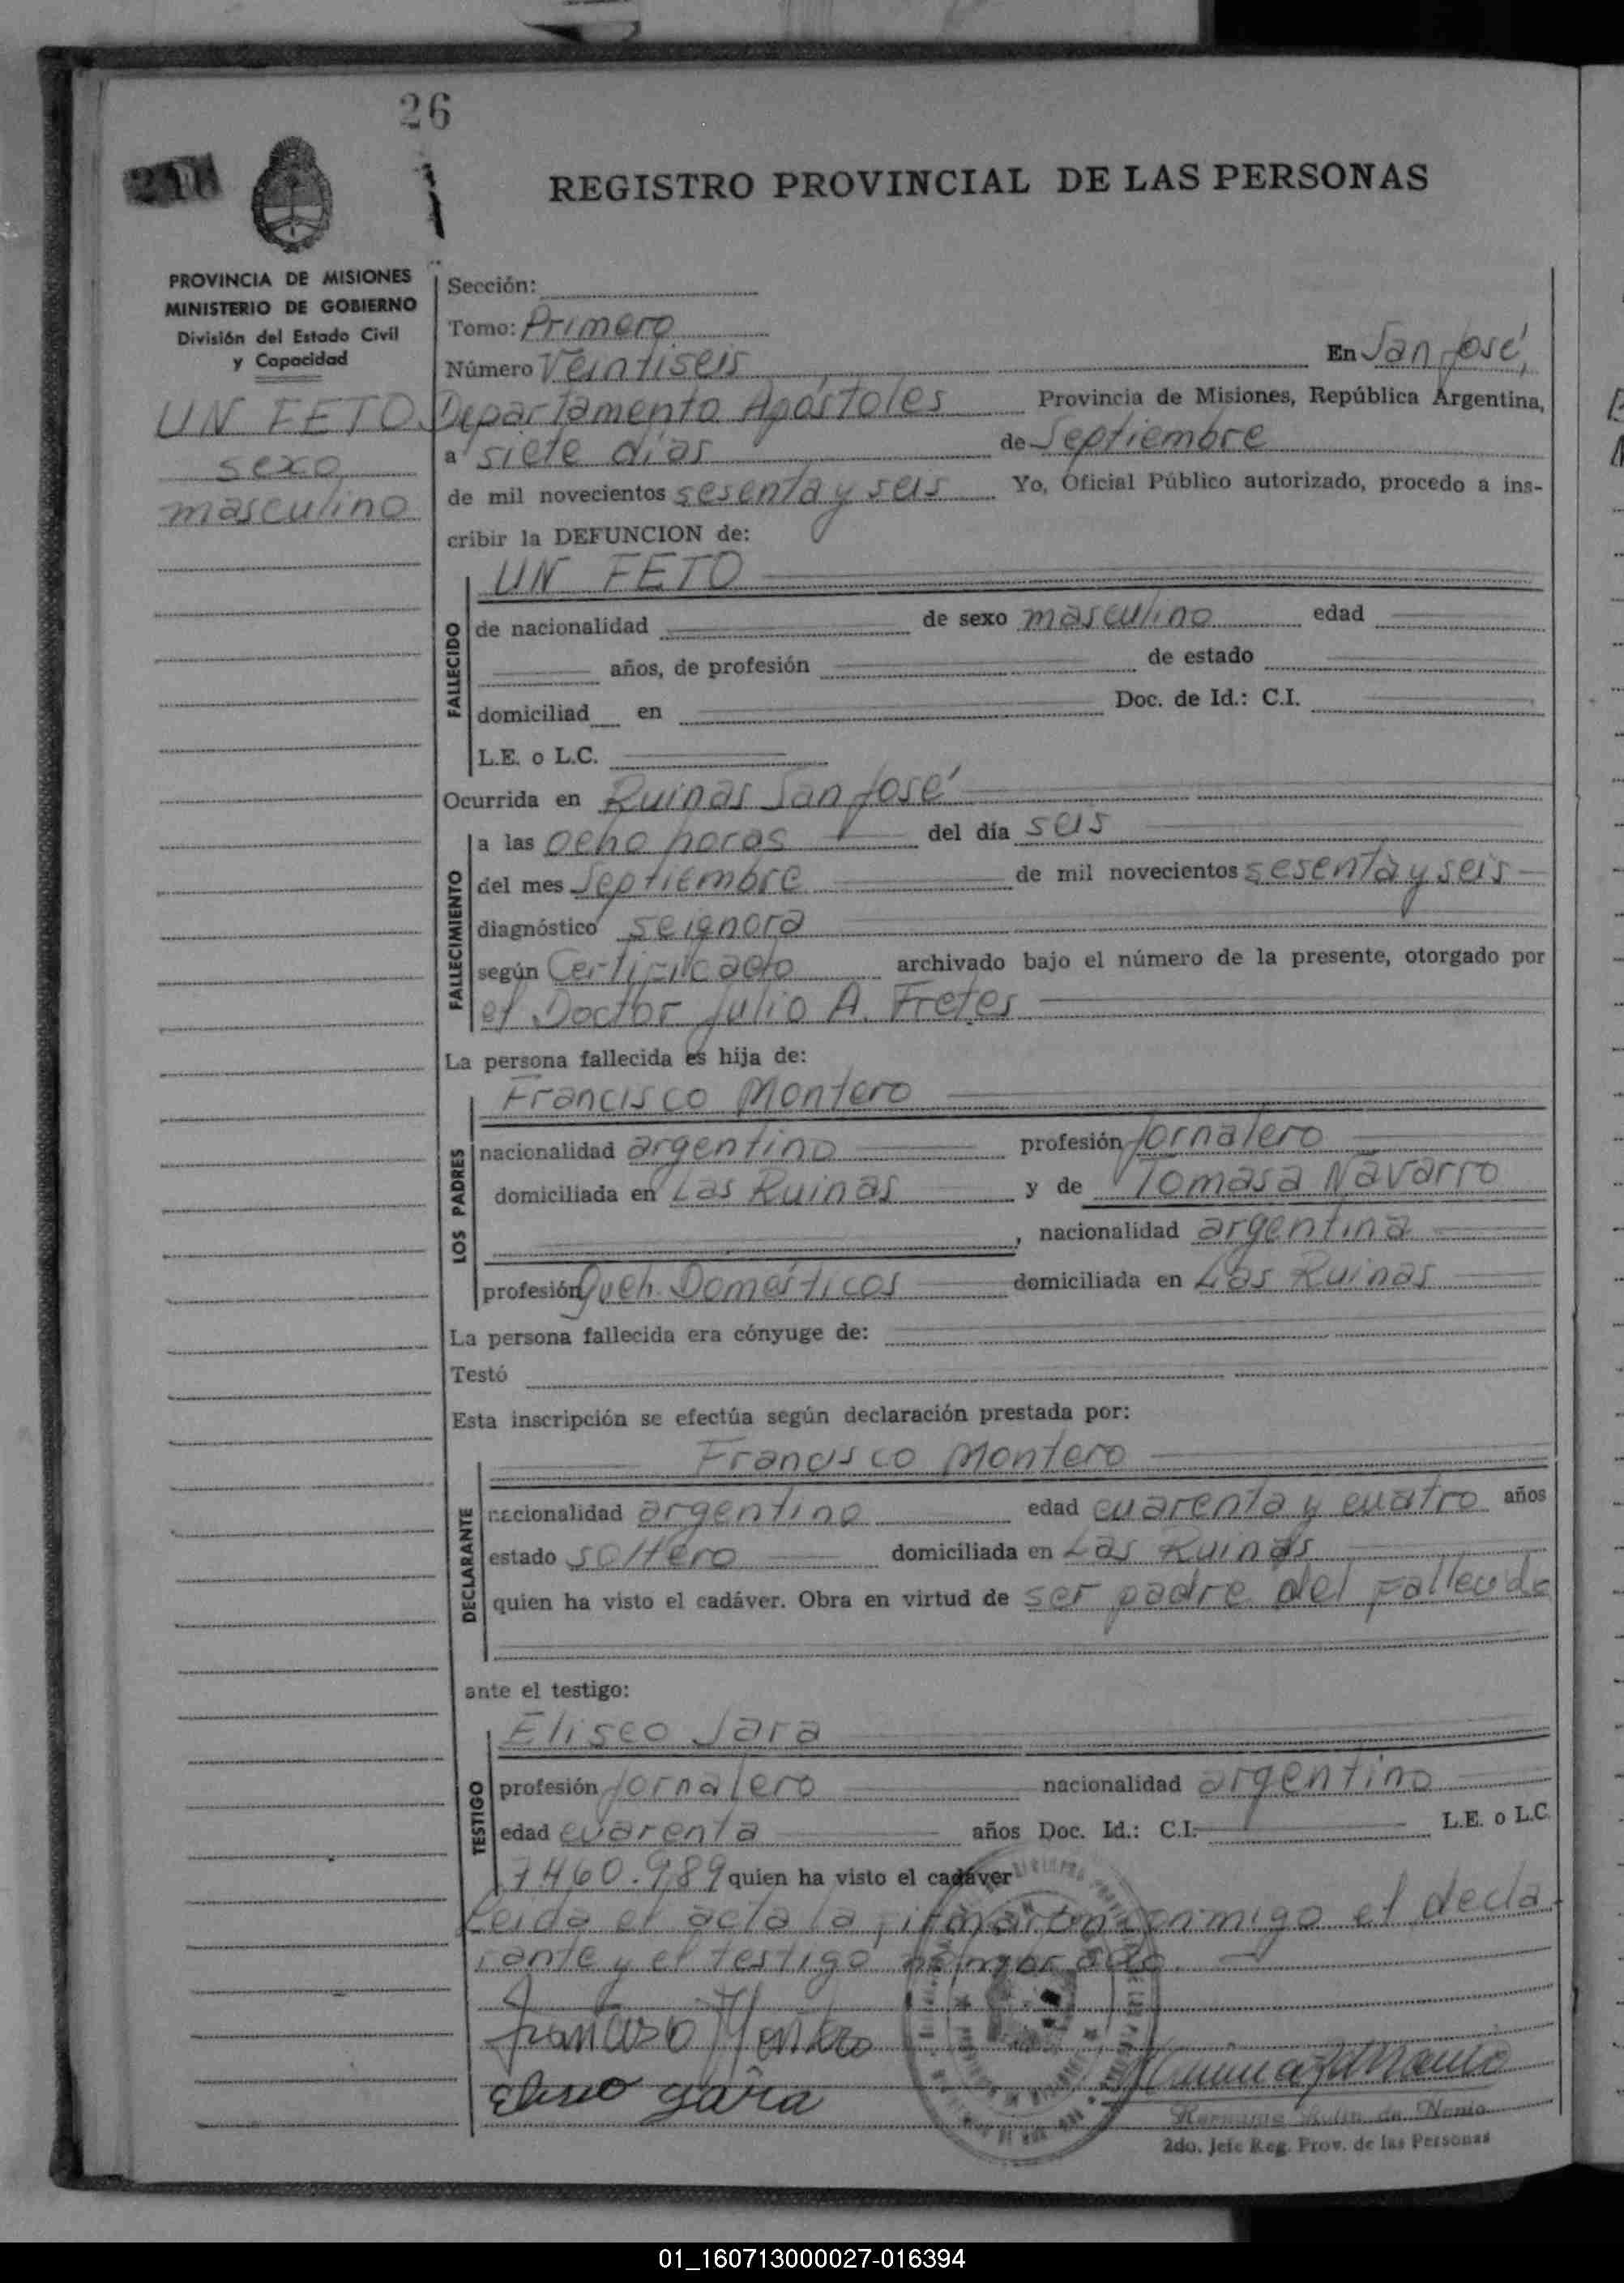 26
REGISTRO PROVINCIAL DE LAS PERSONAS
PROVINCIA DE MISIONES
MINISTERIO DE GOBIERNO
División del Estado Civil
y Capacidad
UN FETO
sexo
masculino
Sección:
Tomo: Primero
Número Veintiseis En San José,
Departamento Apóstoles Provincia de Misiones, República Argentina,
a siete días de Septiembre
de mil novecientos sesenta y seis Yo, Oficial Público autorizado, procedo a ins-
cribir la DEFUNCION de:
FALLECIDO
UN FETO
de nacionalidad de sexo masculino edad
años, de profesión de estado
domiciliad en Doc. de Id.: C.I.
L.E. o L.C.
Ocurrida en Ruinas San José
FALLECIMIENTO
a las ocho horas del día seis
del mes Septiembre de mil novecientos sesenta y seis
diagnóstico se ignora
según Certificado archivado bajo el número de la presente, otorgado por
el Doctor Julio A. Fretes
La persona fallecida es hija de:
LOS PADRES
Francisco Montero
nacionalidad argentino profesión Jornalero
domiciliada en Las Ruinas y de Tomasa Navarro
, nacionalidad argentina
profesión Queh. Domésticos domiciliada en Las Ruinas
La persona fallecida era cónyuge de:
Testó
Esta inscripción se efectúa según declaración prestada por:
DECLARANTE
Francisco Montero
nacionalidad argentino edad cuarenta y cuatro años
estado soltero domiciliada en Las Ruinas
quien ha visto el cadáver. Obra en virtud de ser padre del fallecido
ante el testigo:
TESTIGO
Eliseo Jara
profesión Jornalero nacionalidad argentino
edad cuarenta años Doc. Id.: C.I. L.E. o L.C.
7460.989 quien ha visto el cadáver
Leida el acta la firmaron conmigo el decla-
rante y el testigo nombrado.
Francisco Montero
Eliseo Jara
2do. Jefe Reg. Prov. de las Personas
01_160713000027-016394